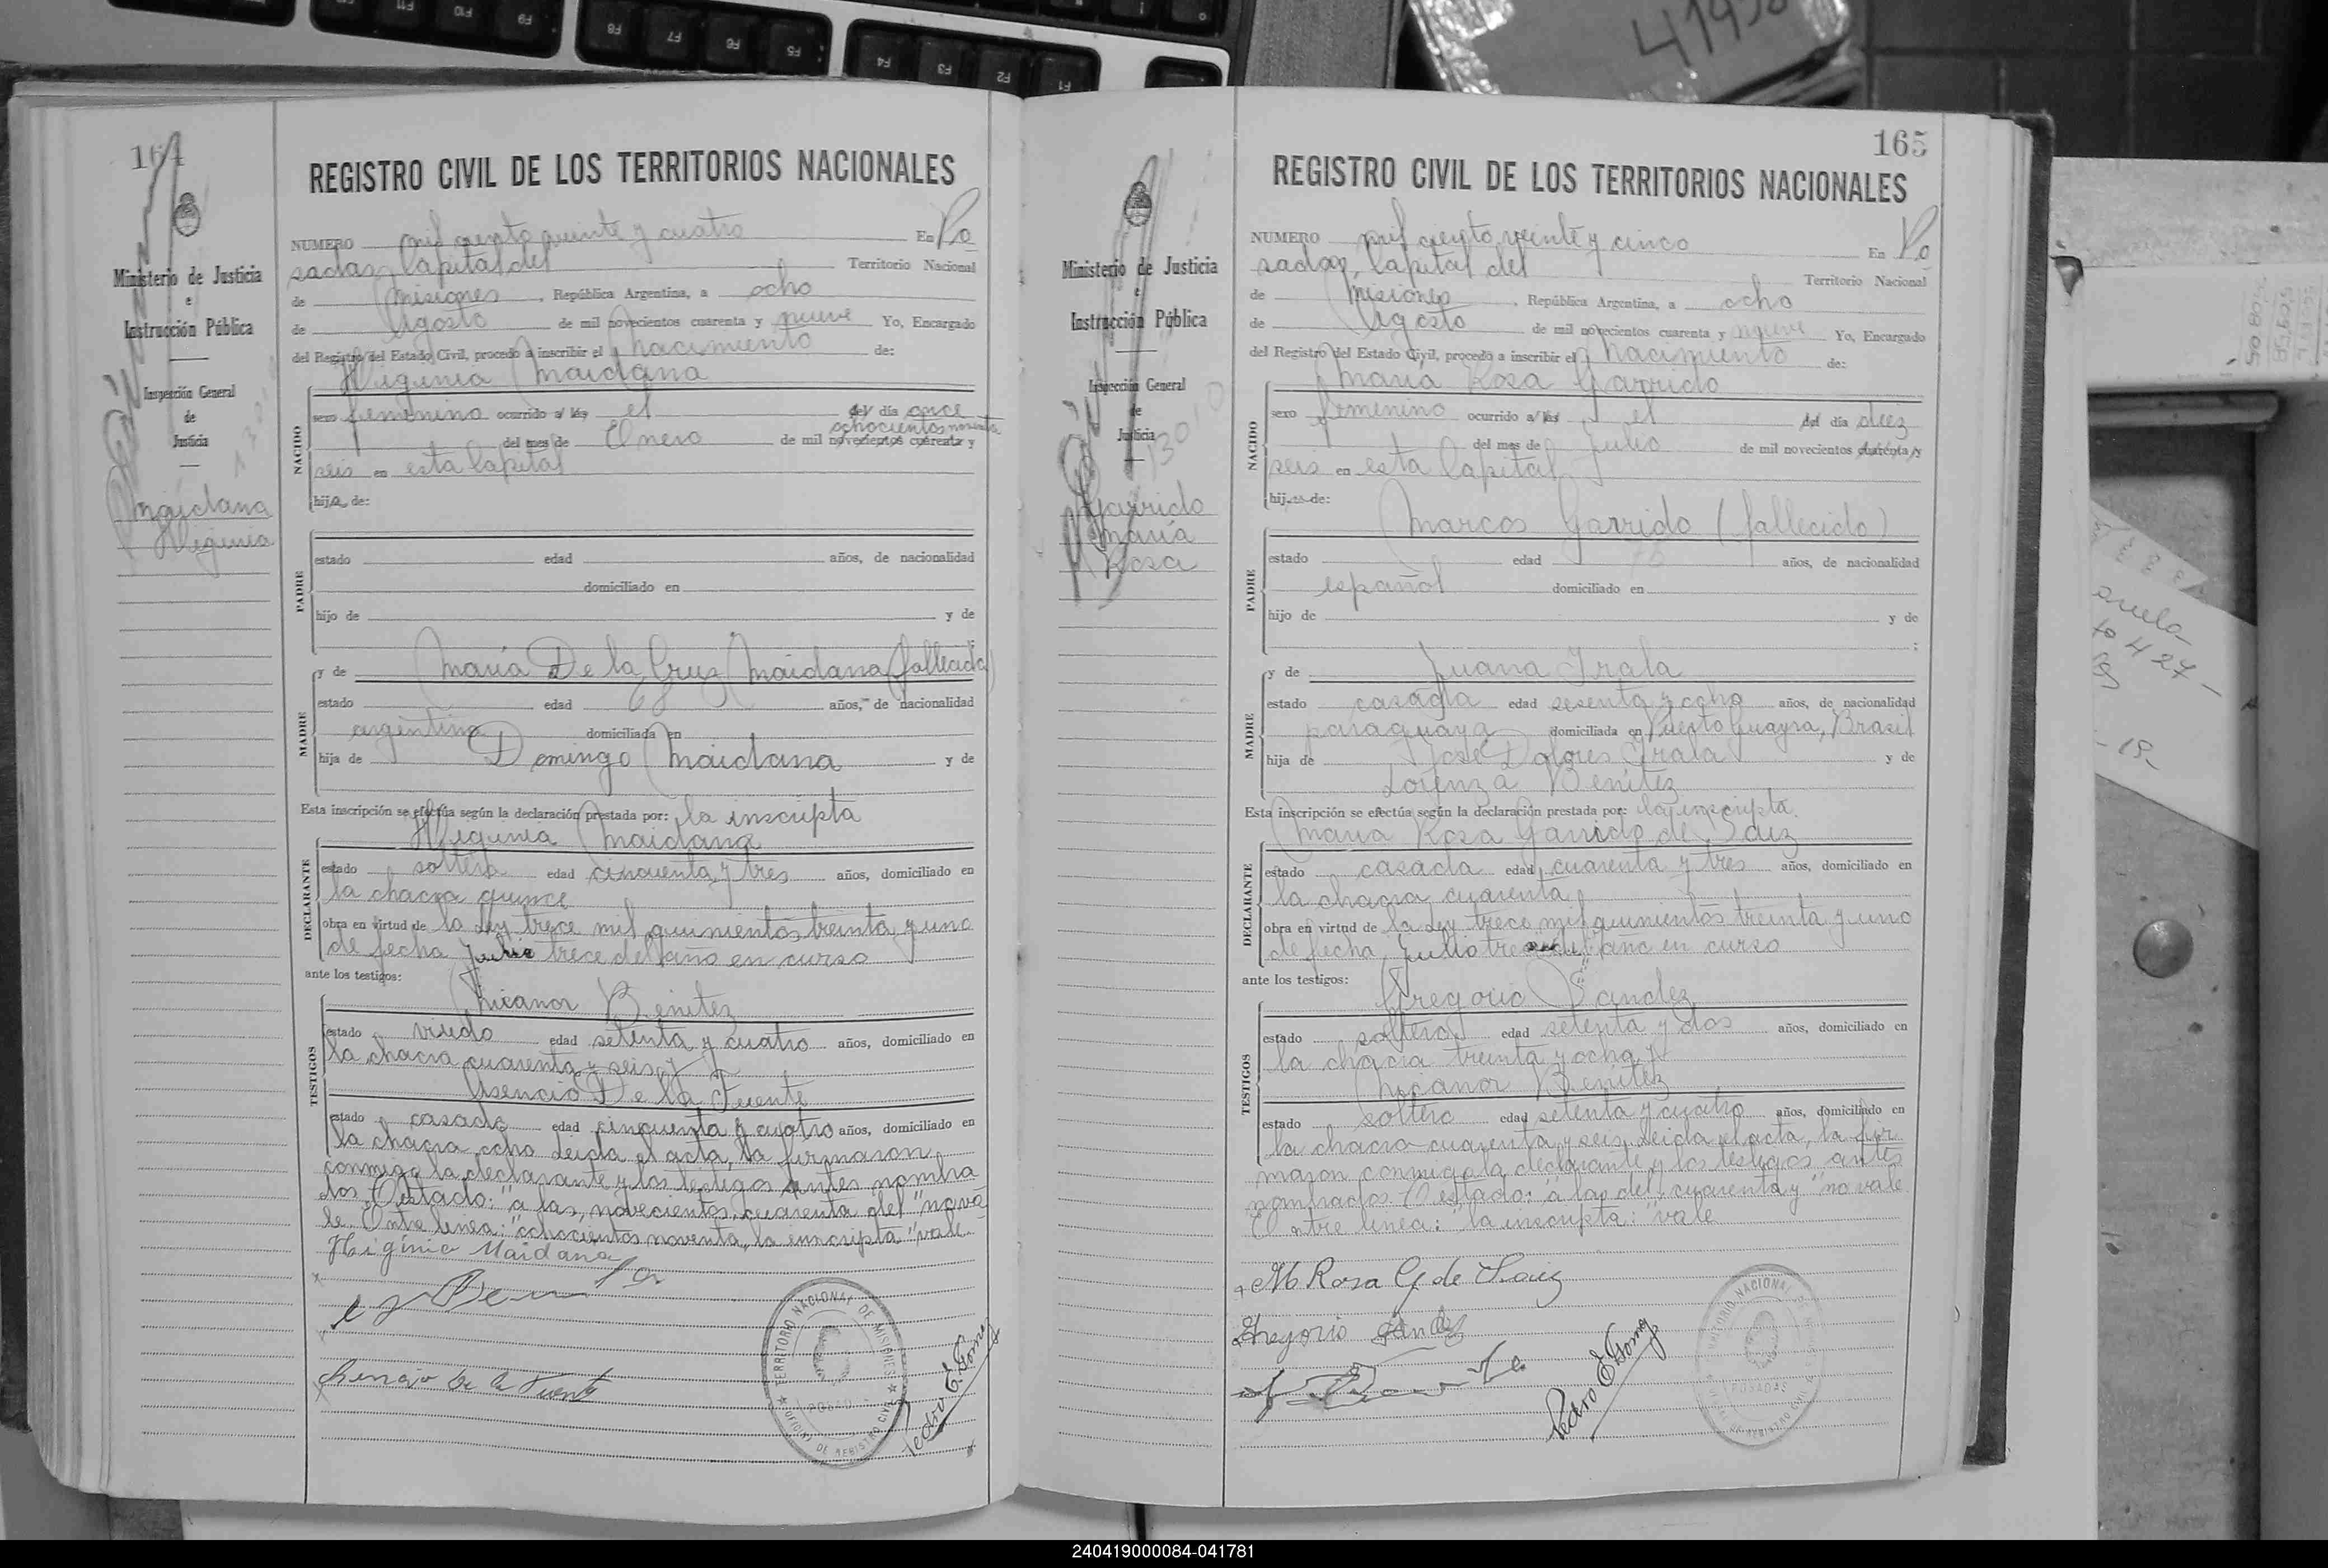 164
REGISTRO CIVIL DE LOS TERRITORIOS NACIONALES
NUMERO mil ciento veinte y cuatro En Po
sadas, Capital del Territorio Nacional
de Misiones, República Argentina, a ocho
de Agosto de mil novecientos cuarenta y nueve Yo, Encargado
del Registro del Estado Civil, procedo a inscribir el nacimiento de:
Higinia Maidana
NACIDO
sexo femenino ocurrido a las el del día once
ochocientos noventa
del mes de Enero de mil novecientos cuarenta y
seis en esta Capital
hija de:
PADRE
estado edad años, de nacionalidad
domiciliado en
hijo de y de
MADRE
y de María De la Cruz Maidana (fallecida)
estado edad años, de nacionalidad
argentina domiciliada en
hija de Domingo Maidana y de
Esta inscripción se efectúa según la declaración prestada por: la inscripta
DECLARANTE
Higinia Maidana
estado soltera edad cincuenta y tres años, domiciliado en
la chacra quince
obra en virtud de la Ley trece mil quinientos treinta y uno
de fecha Julio trece del año en curso
ante los testigos:
TESTIGOS
Nicanor Benitez
estado viudo edad setenta y cuatro años, domiciliado en
la chacra cuarenta y seis y
Asencio De la Fuente
estado casado edad cincuenta y cuatro años, domiciliado en
la chacra ocho Leida el acta, la firmaron
conmigo la declarante y los testigos antes nombra
dos. Testado: "a las, novecientos, cuarenta del" no va
le. Entre linea: "ochocientos noventa, la inscripta" vale.
Higinia Maidana
Asencio De la Fuente
Pedro E. Gomez
TERRITORIO NACIONAL DE MISIONES
POSADAS
OFICINA DE REGISTRO CIVIL
Ministerio de Justicia
e
Instrucción Pública
Inspección General
de
Justicia
Maidana
Higinia
165
REGISTRO CIVIL DE LOS TERRITORIOS NACIONALES
NUMERO mil ciento veinte y cinco En Po
sadas, Capital del Territorio Nacional
de Misiones, República Argentina, a ocho
de Agosto de mil novecientos cuarenta y nueve Yo, Encargado
del Registro del Estado Civil, procedo a inscribir el nacimiento de:
María Rosa Garrido
NACIDO
sexo femenino ocurrido a las el del día diez
del mes de Julio de mil novecientos cuarenta y
seis en esta Capital
hija de:
PADRE
Marcos Garrido (fallecido)
estado edad años, de nacionalidad
español domiciliado en
hijo de y de
MADRE
y de Juana Irala
estado casada edad sesenta y ocho años, de nacionalidad
paraguaya domiciliada en Puerto Guayra, Brasil
hija de José Dolores Irala y de
Lorenza Benitez
Esta inscripción se efectúa según la declaración prestada por: la inscripta.
DECLARANTE
María Rosa Garrido de Saez
estado casada edad cuarenta y tres años, domiciliado en
la chacra cuarenta
obra en virtud de la Ley trece mil quinientos treinta y uno
de fecha Julio trece del año en curso
ante los testigos:
TESTIGOS
Gregorio Sandez
estado soltero edad setenta y dos años, domiciliado en
la chacra treinta y ocho y
Nicanor Benitez
estado soltero edad setenta y cuatro años, domiciliado en
la chacra cuarenta y seis. Leida el acta, la fir
maron conmigo la declarante y los testigos antes
nombrados. Testado: "a las, del, cuarenta y" no vale
Entre linea: "la inscripta:" vale
M Rosa G de Saez
Gregorio Sandez
Pedro E Gomez
TERRITORIO NACIONAL DE MISIONES
POSADAS
Ministerio de Justicia
e
Instrucción Pública
Inspección General
de
Justicia
Garrido
María
Rosa
240419000084-041781